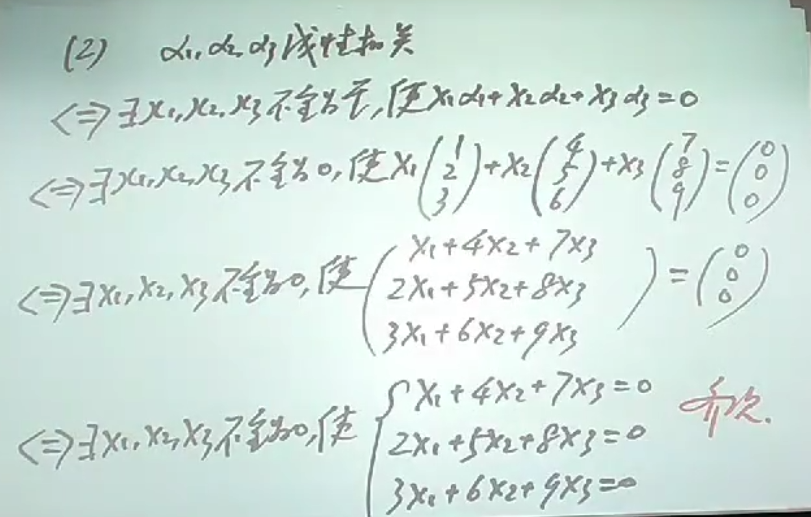 (2) α₁,α₂,α₃线性相关
<=>∃x₁,x₂,x₃不全为零,使x₁α₁+x₂α₂+x₃α₃=0
<=>∃x₁,x₂,x₃不全为0,使x₁(1 2 3)+x₂(4 5 6)+x₃(7 8 9)=(0 0 0)
<=>∃x₁,x₂,x₃不全为0,使(x₁+4x₂+7x₃
2x₁+5x₂+8x₃
3x₁+6x₂+9x₃)=(0 0 0)
<=>∃x₁,x₂,x₃不全为0,使{x₁+4x₂+7x₃=0 齐次.
2x₁+5x₂+8x₃=0
3x₁+6x₂+9x₃=0